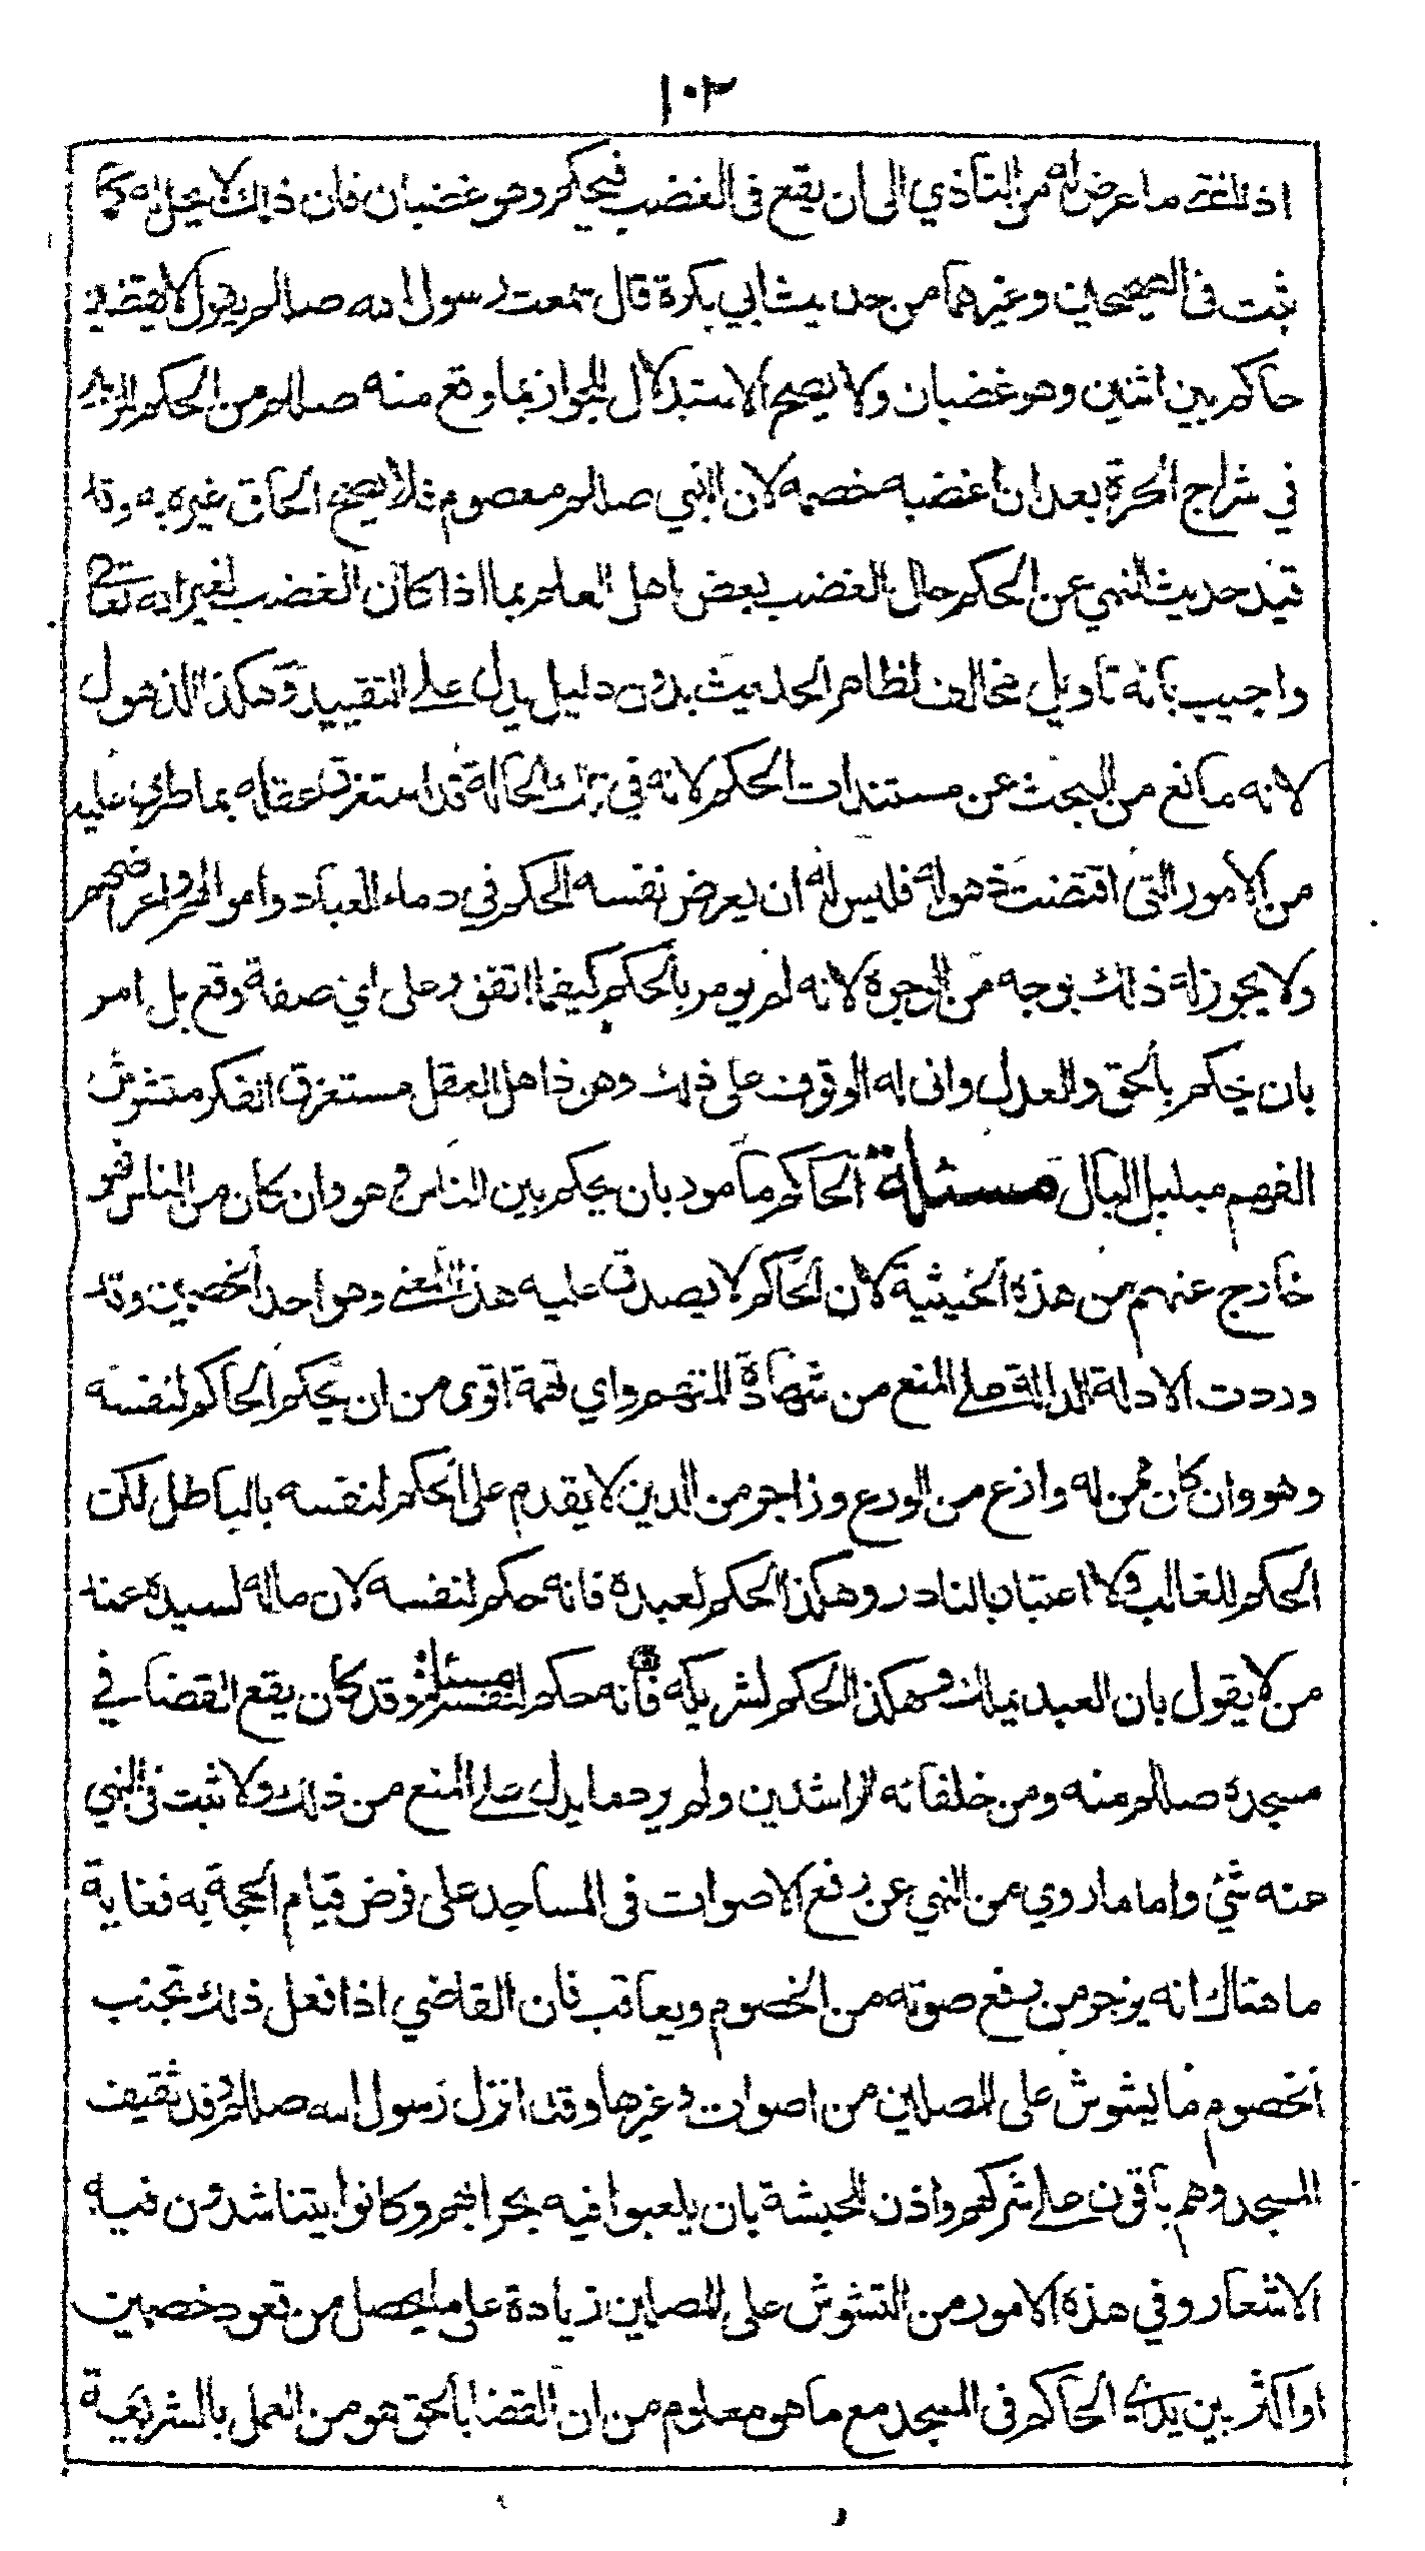 ١٠٢
اذ بلغ ما عرض له من التاذي الى ان يقع فى الغضب فيحكم وهو غضبان فان ذلك لا يحل له كما
ثبت فى الصحيحين وغيرهما من حديث ابي بكرة قال سمعت رسول الله صللم يقول لا يقضين
حاكم بين اثنين وهو غضبان ولا يصح الاستدلال للجواز بما وقع منه صللم من الحكم للزبير
في شراج الحرة بعد ان اغضبه خصمه لان النبي صللم معصوم فلا يصح الحاق غيره به وقد
قيد حديث النهي عن الحكم حال الغضب بعض اهل العلم بما اذا كان الغضب لغير الله تعالى
واجيب بانه تاويل مخالف لظاهر الحديث بدون دليل يدل على التقييد وهكذا الذهول
لانه مانع من البحث عن مستندات الحكم لانه في تلك الحالة قد استغرق عقله بما طرئ عليه
من الامور التى اقتضت ذهوله فليس له ان يعرض نفسه الحكم في دماء العباد واموالهم واعراضهم
ولا يجوز له ذلك بوجه من الوجوه لانه لم يومر بالحكم كيفما اتفق وعلى اي صفة وقع بل امر
بان يحكم بالحق والعدل وانى له الوقوف على ذلك وهو ذاهل العقل مستغرق الفكر متشوش
الفهم مبلبل البال مسئلة الحاكم مامور بان يحكم بين الناس وهو وان كان من الناس فهو
خارج عنهم من هذه الحيثية لان الحاكم لا يصدق عليه هذا المعنى وهو احد الخصمين وقد
وردت الادلة الدالة على المنع من شهادة المتهم واي تهمة اقوى من ان يحكم الحاكم لنفسه
وهو وان كان ممن له وازع من الورع وزاجر من الدين لا يقدم على الحكم لنفسه بالباطل لكن
الحكم للغالب ولا اعتبار بالنادر وهكذا الحكم لعبده فانه حكم لنفسه لان ماله لسيده عند
من لا يقول بان العبد يملك وهكذا الحكم لشريكه فانه حكم لنفسه مسئلة وقد كان يقع القضاء في
مسجده صللم منه ومن خلفائه الراشدين ولم يرد ما يدل على المنع من ذلك ولا ثبت فى النهي
عنه شئ واما ما روي من النهي عن رفع الاصوات فى المساجد على فرض قيام الحجة به فغاية
ما هناك انه يزجر من رفع صوته من الخصوم ويعاقب فان القاضي اذا فعل ذلك تجنب
الخصوم ما يشوش على المصلين من اصوات وغيرها وقد انزل رسول الله صللم وفد ثقيف
المسجد وهم باقون على شركهم واذن للحبشة بان يلعبوا فيه بحرابهم وكانوا يتناشدون فيه
الاشعار وفي هذه الامور من التشوش على المصلين زيادة على ما يحصل من قعود خصمين
او اكثر بين يدي الحاكم فى المسجد مع ما هو معلوم من ان القضا بالحق هو من العمل بالشريعة